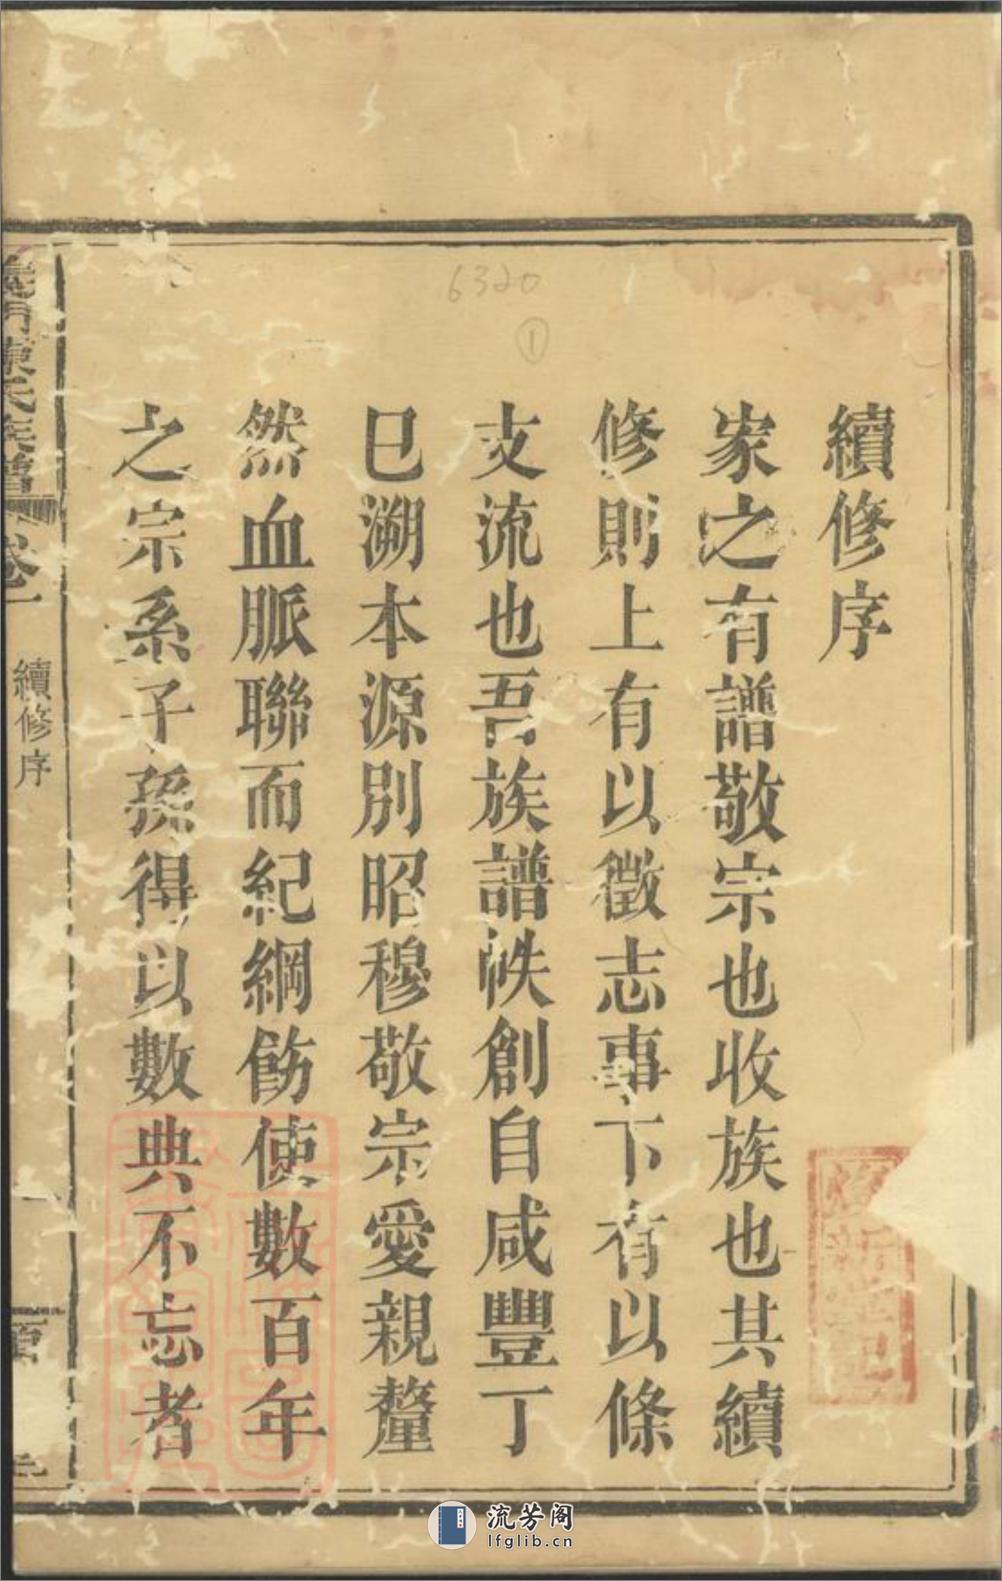 續修序
家之有譜敬宗也收族也其續
修則上有以徵志事下有以條
支流也吾族譜帙創自咸豐丁
巳溯本源別昭穆敬宗愛親釐
然血脈聯而紀綱飭使數百年
之宗系子孫得以數典不忘者
義門陳氏族譜
卷一
續修序
6320
1
流芳阁
lfglib.cn